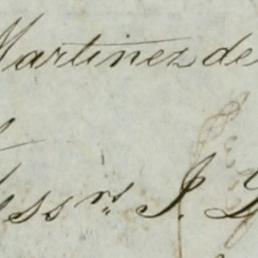 Martinez de
Messrs J.